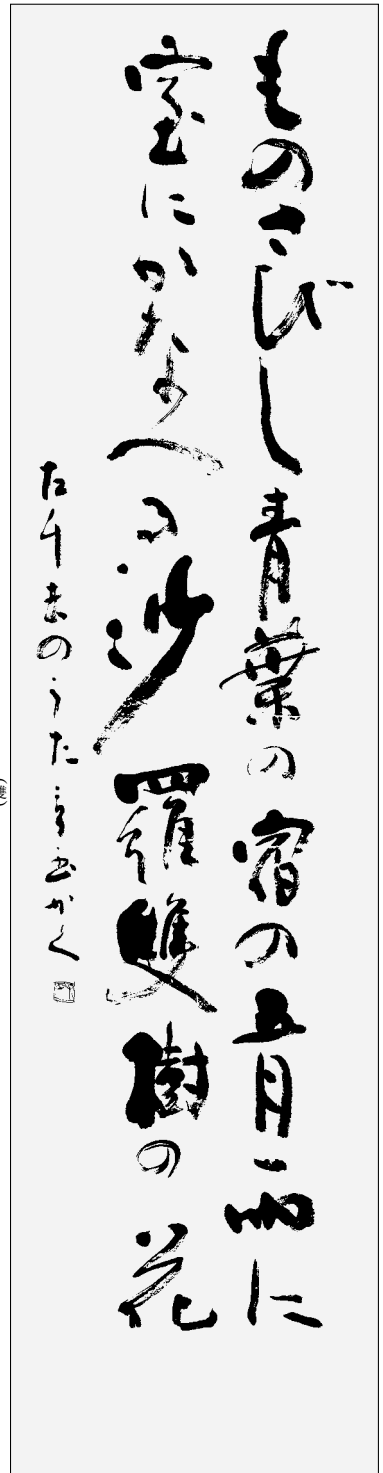 ものさびし青葉の宿の五月雨に
室にかなへる沙羅雙樹の花
左千夫のうた かく